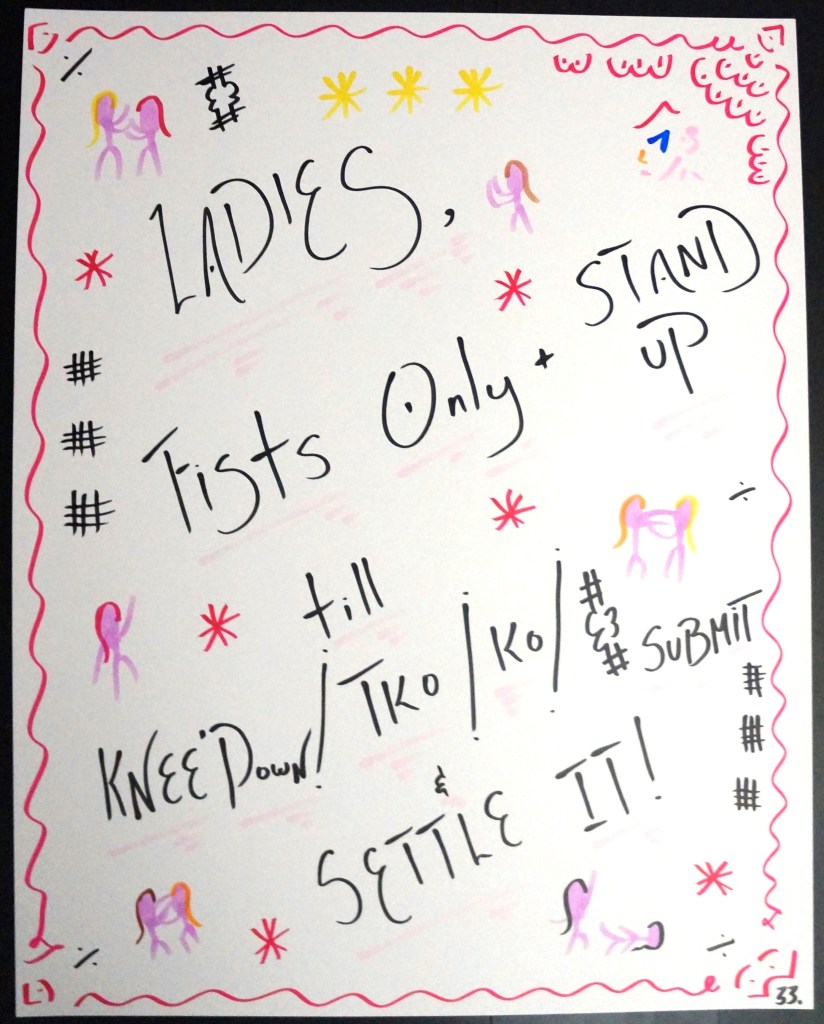 LADIES,
Fists Only + STAND UP
till
KNEE DOWN! / TKO / KO / SUBMIT
&
SETTLE IT!
33.